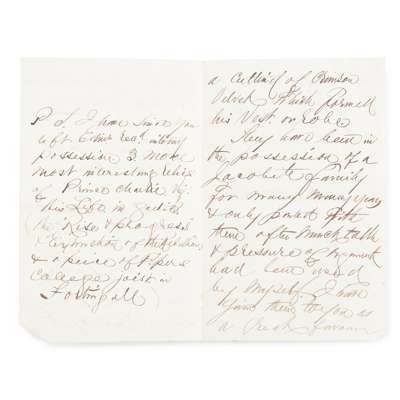 P S. I have since you
left Edin had into my
possession 3 more
most interesting relics
of Prince Charlie viz
his Life in
the Rise & progress &
Extinction of the Rebellion
& a piece of
College
Fortingall
a cutting of Crimson
Velvet which formed
his Vest or robe
They have been in
the possession of a
Jacobite family
for many many years
& only parted with
them after much talk
& pressure of argument
had been used
by myself, I have
given them to you as
a Great favour